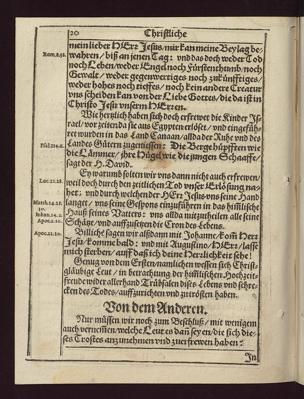 20 Christliche
mein lieber HErr Jesus / mir kan meine Beylag be-
wahren / biß an jenen Tag: und das doch weder Tod
noch Leben / weder Engel noch Fürstenthumb / noch
Gewalt / weder gegenwertiges noch zukünfftiges /
weder hohes noch tieffes / noch kein andere Creatur
uns scheiden kan von der Liebe Gottes / die da ist in
Christo Jesu unserm HErren.
Wie hertzlich haben sich doch erfrewet die Kinder Is-
rael / vor zeiten da sie aus Egypten erlöset / und eingefüh-
ret wurden in das Land Canaan / alda der Ruhe und des
Landes Gütern zugeniessen: Die Berge hüpfften wie
die Lämmer / ihre Hügel wie die jungen Schaaffe /
saget der H. David.
Ey warumb solten wir uns dann nicht auch erfrewen /
weil doch durch den zeitlichen Tod unser Erlösung na-
het: und durch welchen der HErr Jesus uns seine Hand
langet / uns seine Gespons einzuführen in das himlische
Hauß seines Vatters: uns allda mitzutheilen alle seine
Schätze / und auffzusetzen die Cron des Lebens.
Billiche sagen wir alsdann mit Johanne / kom HErr
Jesu / komme bald: und mit Augustino / HErr / lasse
mich sterben / auff daß ich deine Herzlichkeit sehe!
Genug von dem Ersten / namlichen wessen sich Christ-
gläubige Leut / in betrachtung der himlischen Hochzeit-
freude wider allerhand Trübsalen dises Lebens und schre-
cken des Todes / auffzurichten und zutrösten haben.
Von dem Anderen.
Nur müssen wir noch zum Beschluß / mit wenigem
auch vernemmen / welche Leut es dañ seyen / die sich die-
ses Trostes anzunehmen und zuerfrewen haben:
In
Rom. 8. 38.
Psal. 114. 4.
Luc. 21. 28.
Apoc. 2. 10.